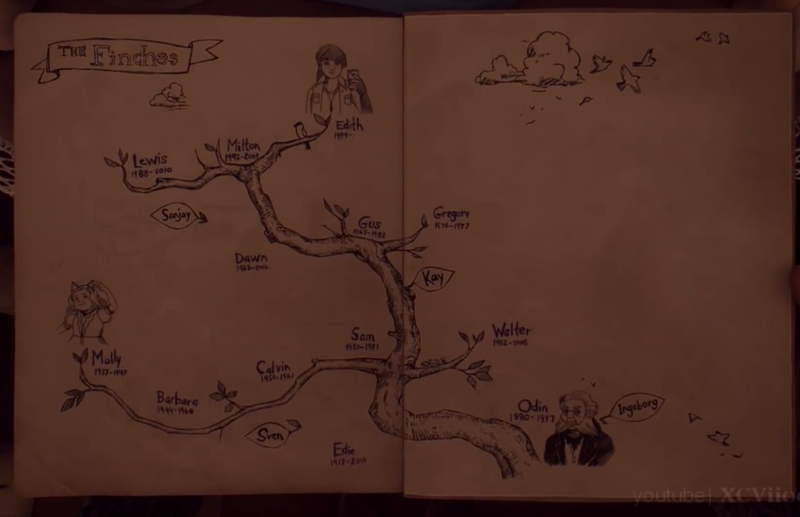 THE Finches
Edith
1999-
Milton
1992-2003
Lewis
1988-2010
Sanjay
Gus
1969-1982
Gregory
1976-1977
Dawn
Kay
Sam
1950-1983
Walter
1952-2005
Molly
1937-1947
Calvin
1950-1961
Barbara
1944-1960
Sven
Odin
1880-1937
Ingeborg
Edie
youtube| XCVii